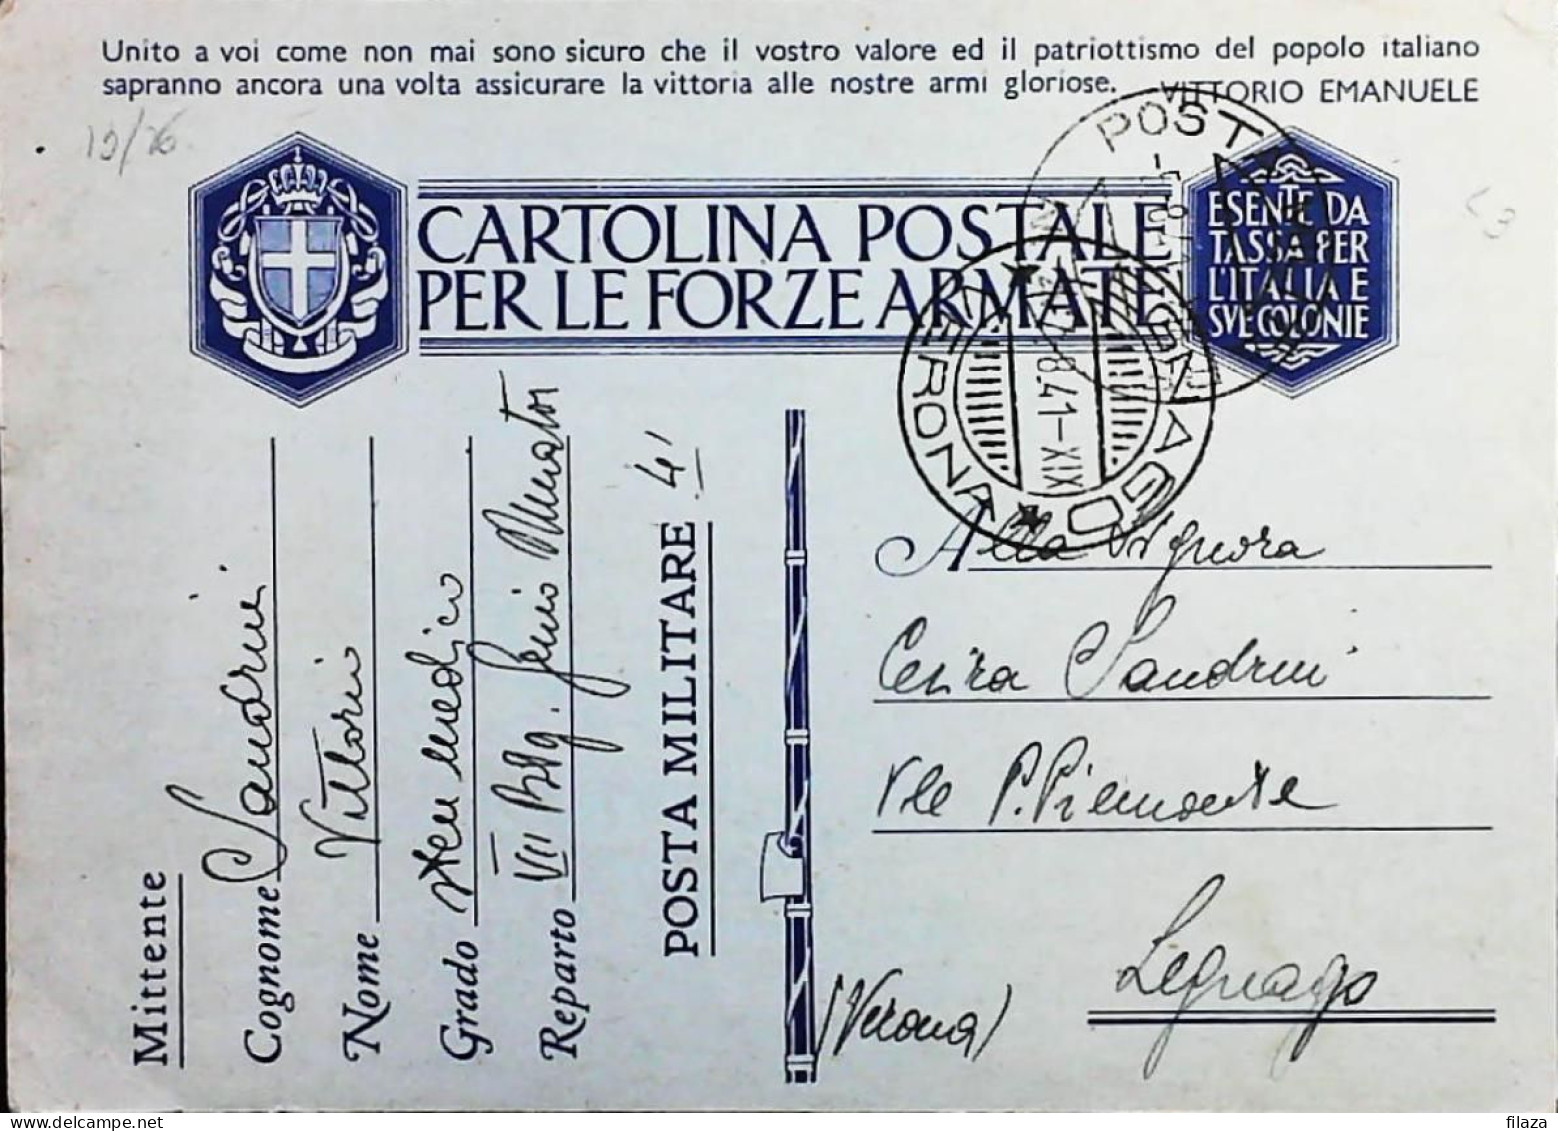 Unito a voi come non mai sono sicuro che il vostro valore ed il patriottismo del popolo italiano
sapranno ancora una volta assicurare la vittoria alle nostre armi gloriose. VITTORIO EMANUELE
19/26
CARTOLINA POSTALE
PER LE FORZE ARMATE
ESENTE DA
TASSA PER
L'ITALIA E
SVE COLONIE
POSTA
LEGNAGO
VERONA
7.8.41-XIX
Mittente
Cognome Sandrini
Nome Vittorio
Grado Ten medico
Reparto VII Btg. Genio Minator
POSTA MILITARE 41
Alla Signora
Cesira Sandrini
Vle P. Piemonte
Legnago
(Verona)
filaza